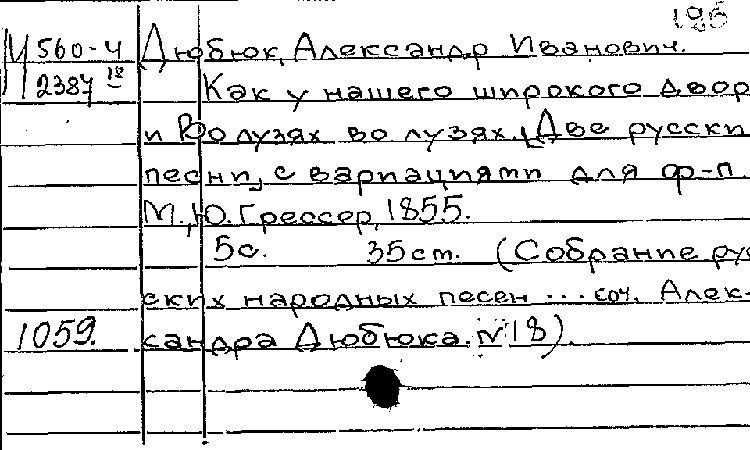 195
М 560-4 Дюбюк, Александр Иванович.
2387 18 Как у нашего широкого двор
и Во лузях во лузях. [Две русски
песни], с вариациями для ф-п
М., Ю. Грессер, 1855.
5с. 35 см. (Собрание рус
ских народных песен ... соч. Алек-
1059. сандра Дюбюка. N 18).